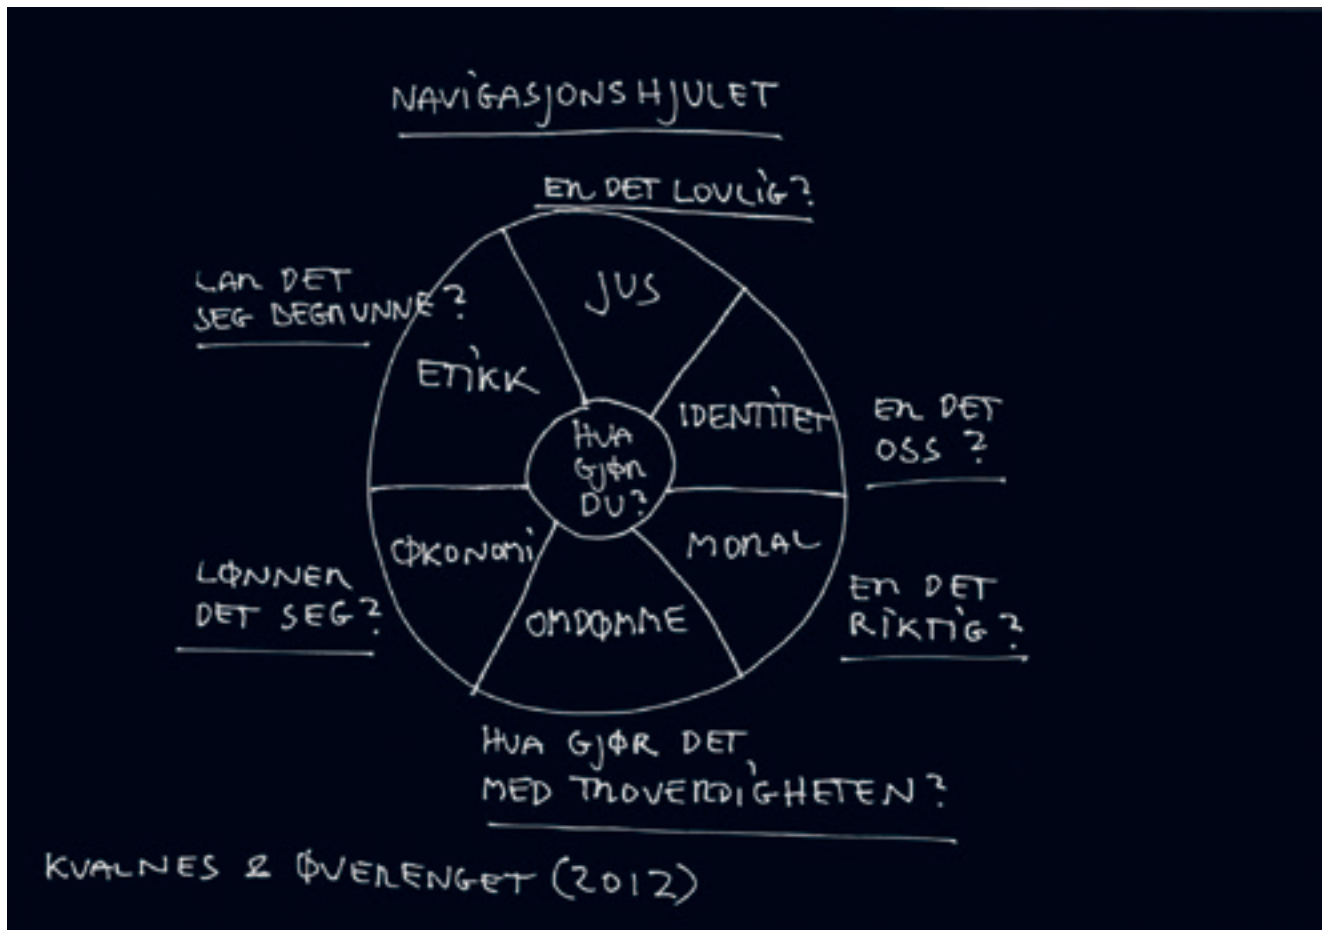 NAVIGASJONSHJULET
ER DET LOVLIG?
JUS
LAR DET
SEG BEGRUNNE?
ETIKK
IDENTITET
ER DET
OSS?
HVA
GJØR
DU?
ØKONOMI
MORAL
LØNNER
DET SEG?
OMDØMME
ER DET
RIKTIG?
HVA GJØR DET
MED TROVERDIGHETEN?
KVALNES & ØVERENGET (2012)